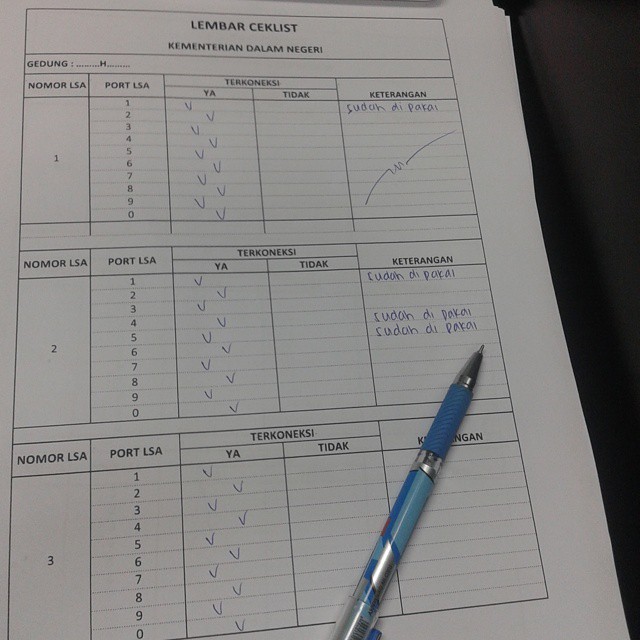 LEMBAR CEKLIST
KEMENTERIAN DALAM NEGERI
GEDUNG : .........H.........
NOMOR LSA PORT LSA TERKONEKSI KETERANGAN
YA TIDAK
1 V sudah di pakai
2 V
3 V
4 V
1 5 V
6 V
7 V
8 V
9 V
0 V
NOMOR LSA PORT LSA TERKONEKSI KETERANGAN
YA TIDAK
1 V sudah di pakai
2 V
3 V
4 V sudah di pakai
2 5 V sudah di pakai
6 V
7 V
8 V
9 V
0 V
NOMOR LSA PORT LSA TERKONEKSI
YA TIDAK
1 V
2 V
3 V
4 V
5 V
3 6 V
7 V
8 V
9 V
0 V